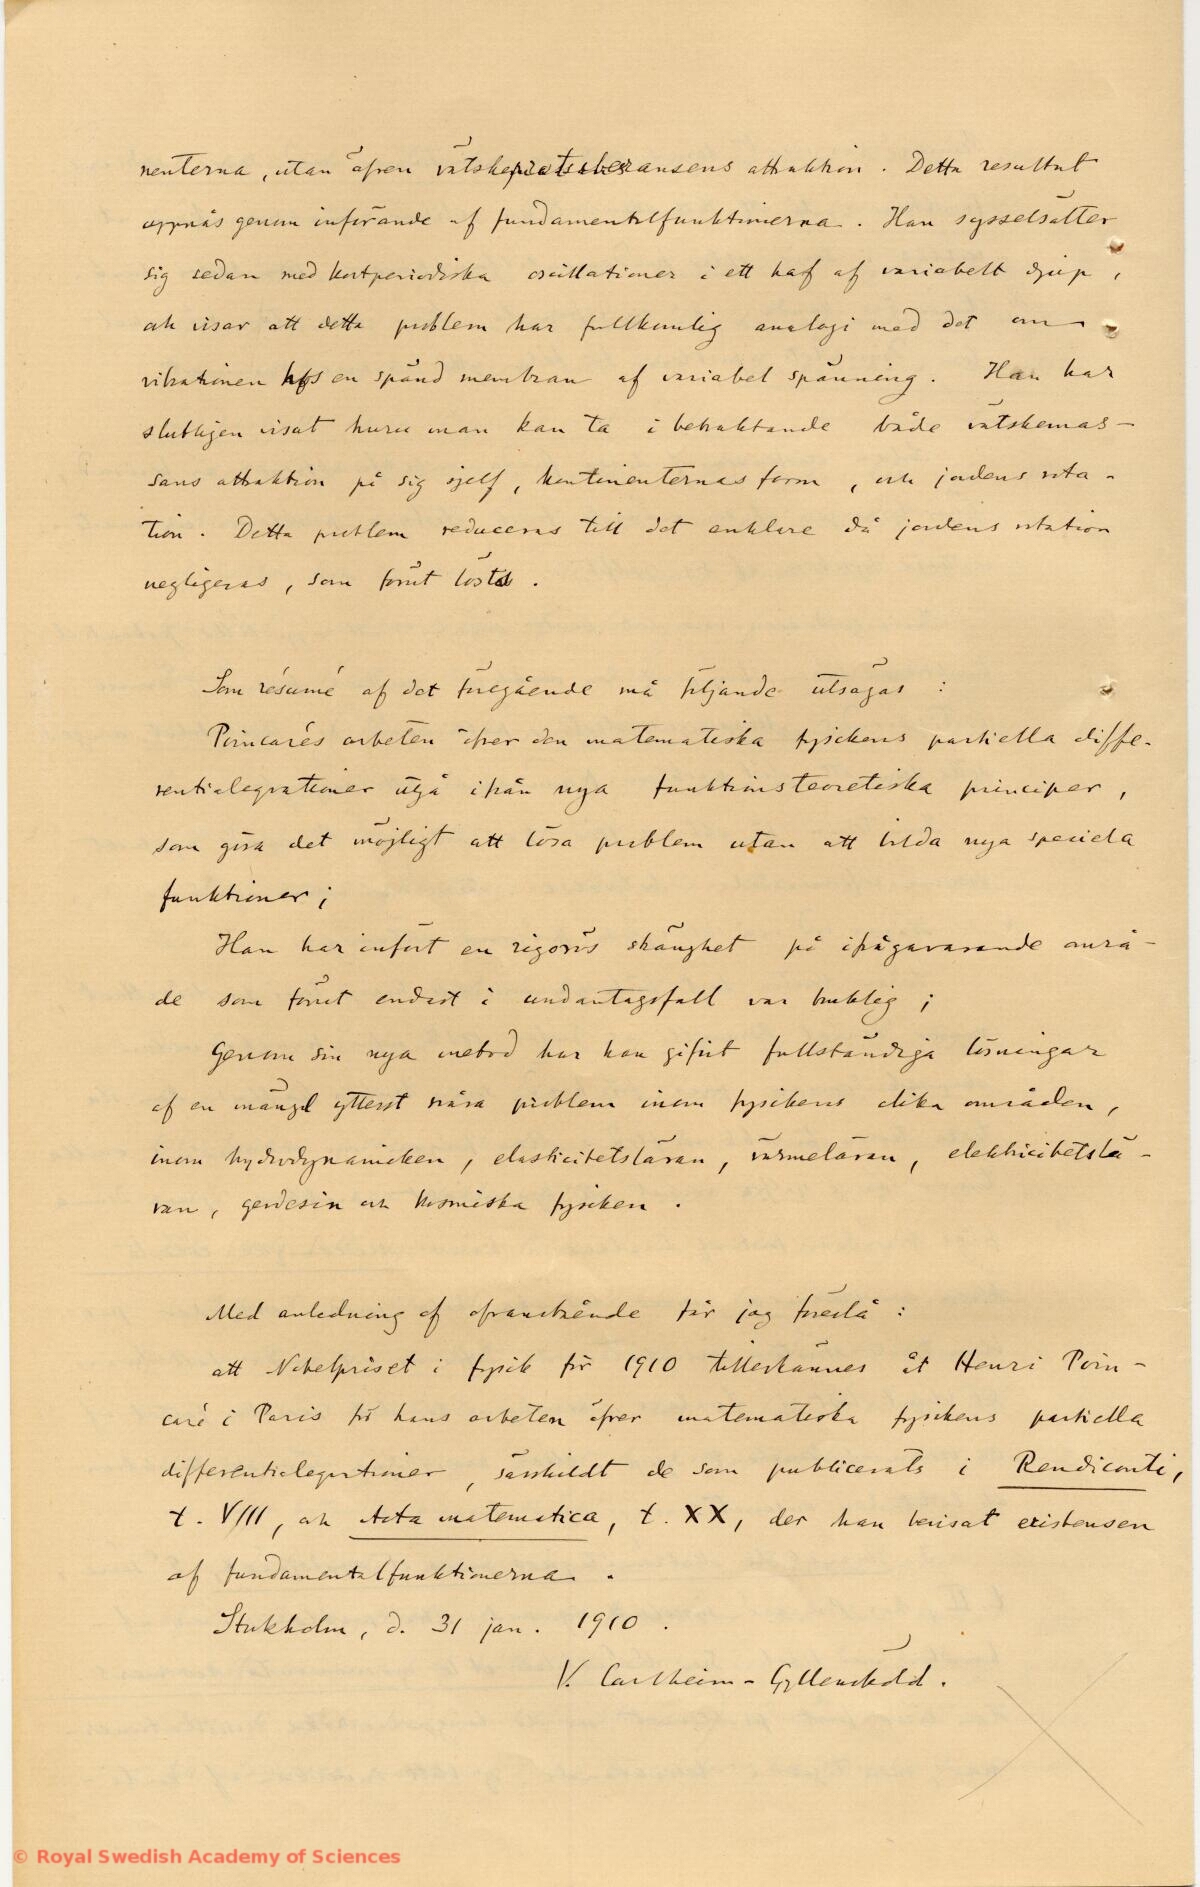 nenterna, utan äfven vätskeprotuberansens attraktion. Detta resultat
uppnås genom införande af fundamentalfunktionerna. Han sysselsätter
sig sedan med kortperiodiska oscillationer i ett haf af variabelt djup,
och visar att detta problem har fullkomlig analogi med det om
vibrationen hos en spänd membran af variabel spänning. Han har
slutligen visat huru man kan ta i betraktande både vätskemas-
sans attraktion på sig sjelf, kontinenternas form, och jordens rota-
tion. Detta problem reduceras till det enklare då jordens rotation
negligeras, som förut lösts.
Som résumé af det föregående må följande utsägas:
Poincarés arbeten öfver den matematiska fysikens partiella diffe-
rentialeqvationer utgå ifrån nya funktionsteoretiska principer,
som göra det möjligt att lösa problem utan att bilda nya speciela
funktioner;
Han har infört en rigorös stränghet på ifrågavarande områ-
de som förut endast i undantagsfall var bruklig;
Genom sin nya metod har han gifvit fullständiga lösningar
af en mängd ytterst svåra problem inom fysikens olika områden,
inom hydrodynamiken, elasticitetsläran, värmeläran, elektricitetslä-
ran, geodesin och kosmiska fysiken.
Med anledning af ofvanstående får jag föreslå:
att Nobelpriset i fysik för 1910 tillerkännes åt Henri Poin-
caré i Paris för hans arbeten öfver matematiska fysikens partiella
differentialeqvationer, särskildt de som publicerats i Rendiconti,
t. VIII, och Acta matematica, t. XX, der han bevisat existensen
af fundamentalfunktionerna.
Stockholm, d. 31 jan. 1910.
V. Carlheim-Gyllensköld.
© Royal Swedish Academy of Sciences